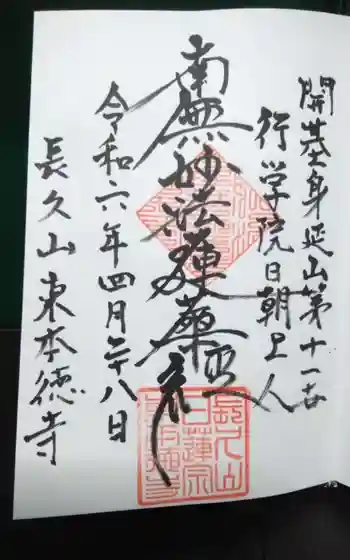 開基身延山第十一世
行学院日朝上人
南無妙法蓮華経
令和六年四月廿八日
長久山東本徳寺
長久山
日蓮宗
東本徳寺